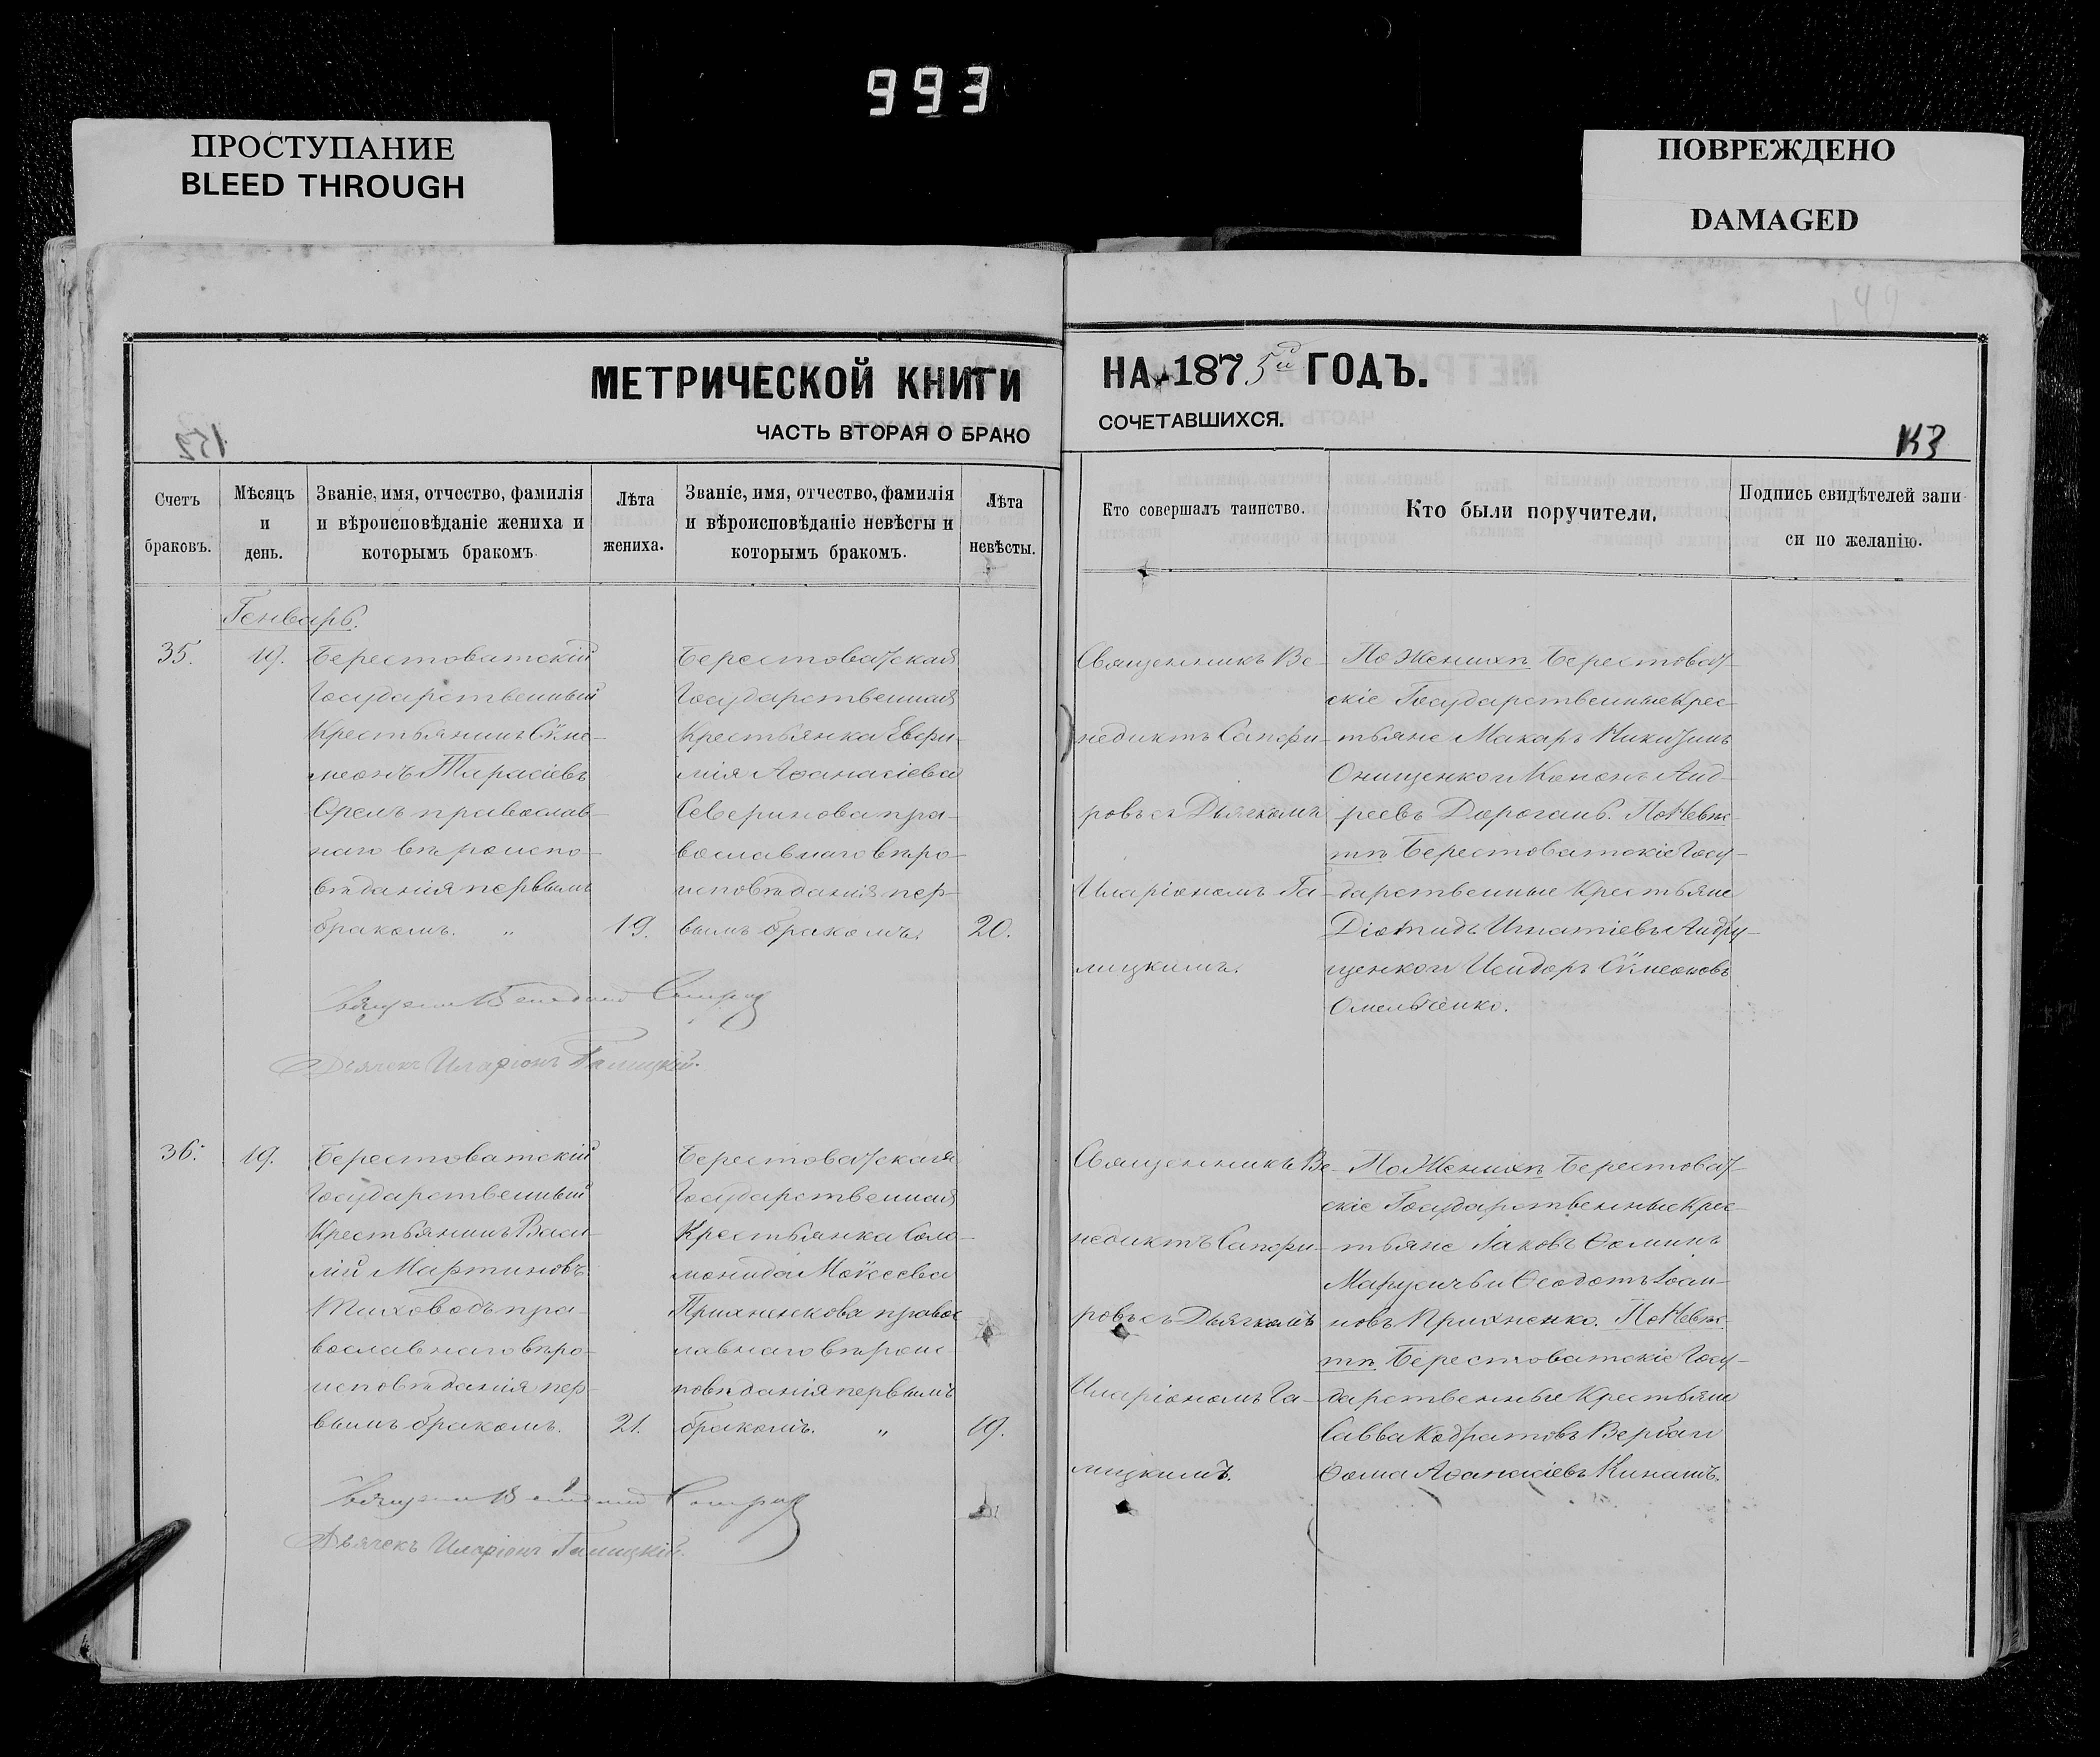 993
ПРОСТУПАНИЕ
BLEED THROUGH
ПОВРЕЖДЕНО
DAMAGED
МЕТРИЧЕСКОЙ КНИГИ
НА 1875й ГОДЪ.
ЧАСТЬ ВТОРАЯ О БРАКО
СОЧЕТАВШИХСЯ.
152
Счетъ
браковъ.
Мѣсяцъ
и
день.
Званіе, имя, отчество, фамилія
и вѣроисповѣданіе жениха и
которымъ бракомъ.
Лѣта
жениха.
Званіе, имя, отчество, фамилія
и вѣроисповѣданіе невѣсты и
которымъ бракомъ.
Лѣта
невѣсты.
Кто совершалъ таинство.
Кто были поручители.
Подпись свидѣтелей запи
си по желанію.
Генварь.
35.
19.
Берестоватскій
Государственный
Крестьянинъ Сѵме-
меонъ Тарасіевъ
Орелъ православ-
наго вѣроиспо-
вѣданія первымъ
бракомъ. „
19.
Берестоватская
Государственная
Крестьянка Евфи-
мія Аѳанасіева
Северинова пра-
вославнаго вѣро-
исповѣданія пер-
вымъ бракомъ.
20.
Священникъ Ве-
недиктъ Сапфи-
ровъ съ Дьячкомъ
Иларіономъ Га-
лицкимъ.
По Женихѣ Берестоват-
скіе Государственные Крес-
тьяне Макаръ Никитинъ
Онищенко и Кононъ Анд-
реевъ Дорогань. По Невѣс-
тѣ Берестоватскіе Госу-
дарственные Крестьяне
Діомидъ Игнатіевъ Андру-
щенко и Исидоръ Сѵмеоновъ
Омельченко.
Дьячекъ Иларіонъ Галицкій.
36.
19.
Берестоватскій
Государственный
Крестьянинъ Васи-
лій Мартиновъ
Тиховодъ пра-
вославнаго вѣро-
исповѣданія пер-
вымъ бракомъ.
21.
Берестоватская
Государственная
Крестьянка Соло-
монида Моѵсеева
Прихненкова правос
лавнаго вѣроис-
повѣданія первымъ
бракомъ. „
19.
Священникъ Ве-
недиктъ Сапфи-
ровъ съ Дьячкомъ
Иларіономъ Га-
лицкимъ.
По Женихѣ Берестоват-
скіе Государственные Крес-
тьяне Іаковъ Ѳоминъ
Марусичь и Ѳеодотъ Іоан-
новъ Прихненко. По Невѣс-
тѣ Берестоватскіе Госу-
дарственные Крестьяне
Савва Кодратовъ Вербаи
Ѳома Аѳанасіевъ Кинашъ.
Дьячекъ Иларіонъ Галицкій.